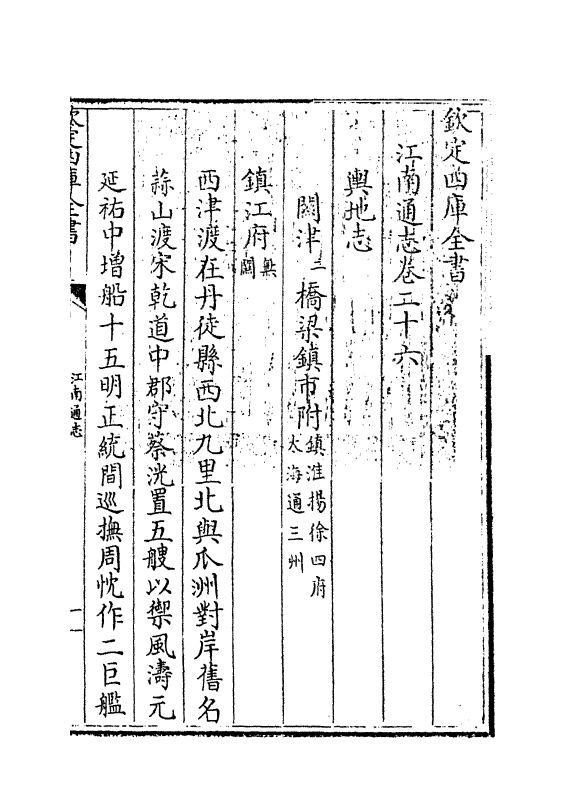 欽定四庫全書
江南通志卷二十六
輿地志
關津二 橋梁鎮市附 鎮淮揚徐四府 太海通三州
鎮江府 無關
西津渡在丹徒縣西北九里北與瓜洲對岸舊名
蒜山渡宋乾道中郡守蔡洸置五艘以禦風濤元
延祐中增船十五明正統間巡撫周忱作二巨艦
欽定四庫全書
江南通志
一